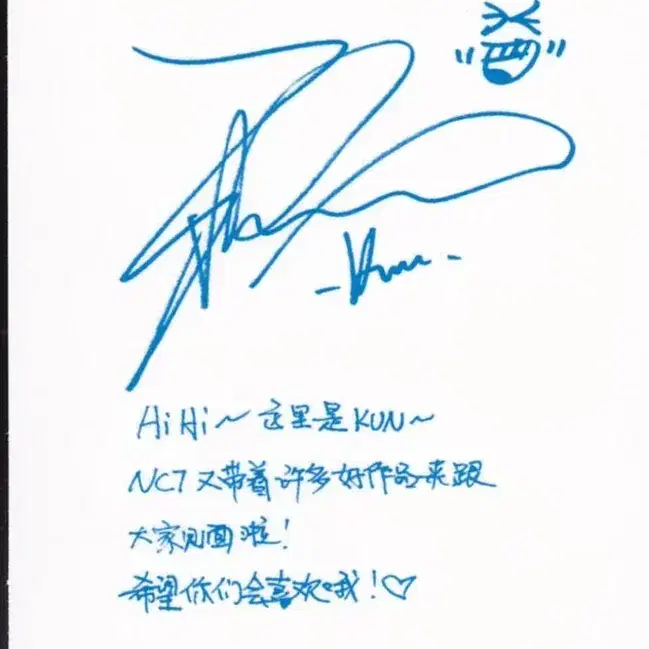 -Kun-
HiHi~ 这里是KUN~
NCT 又带着许多好作品来跟
大家见面啦!
希望你们会喜欢哦!♡